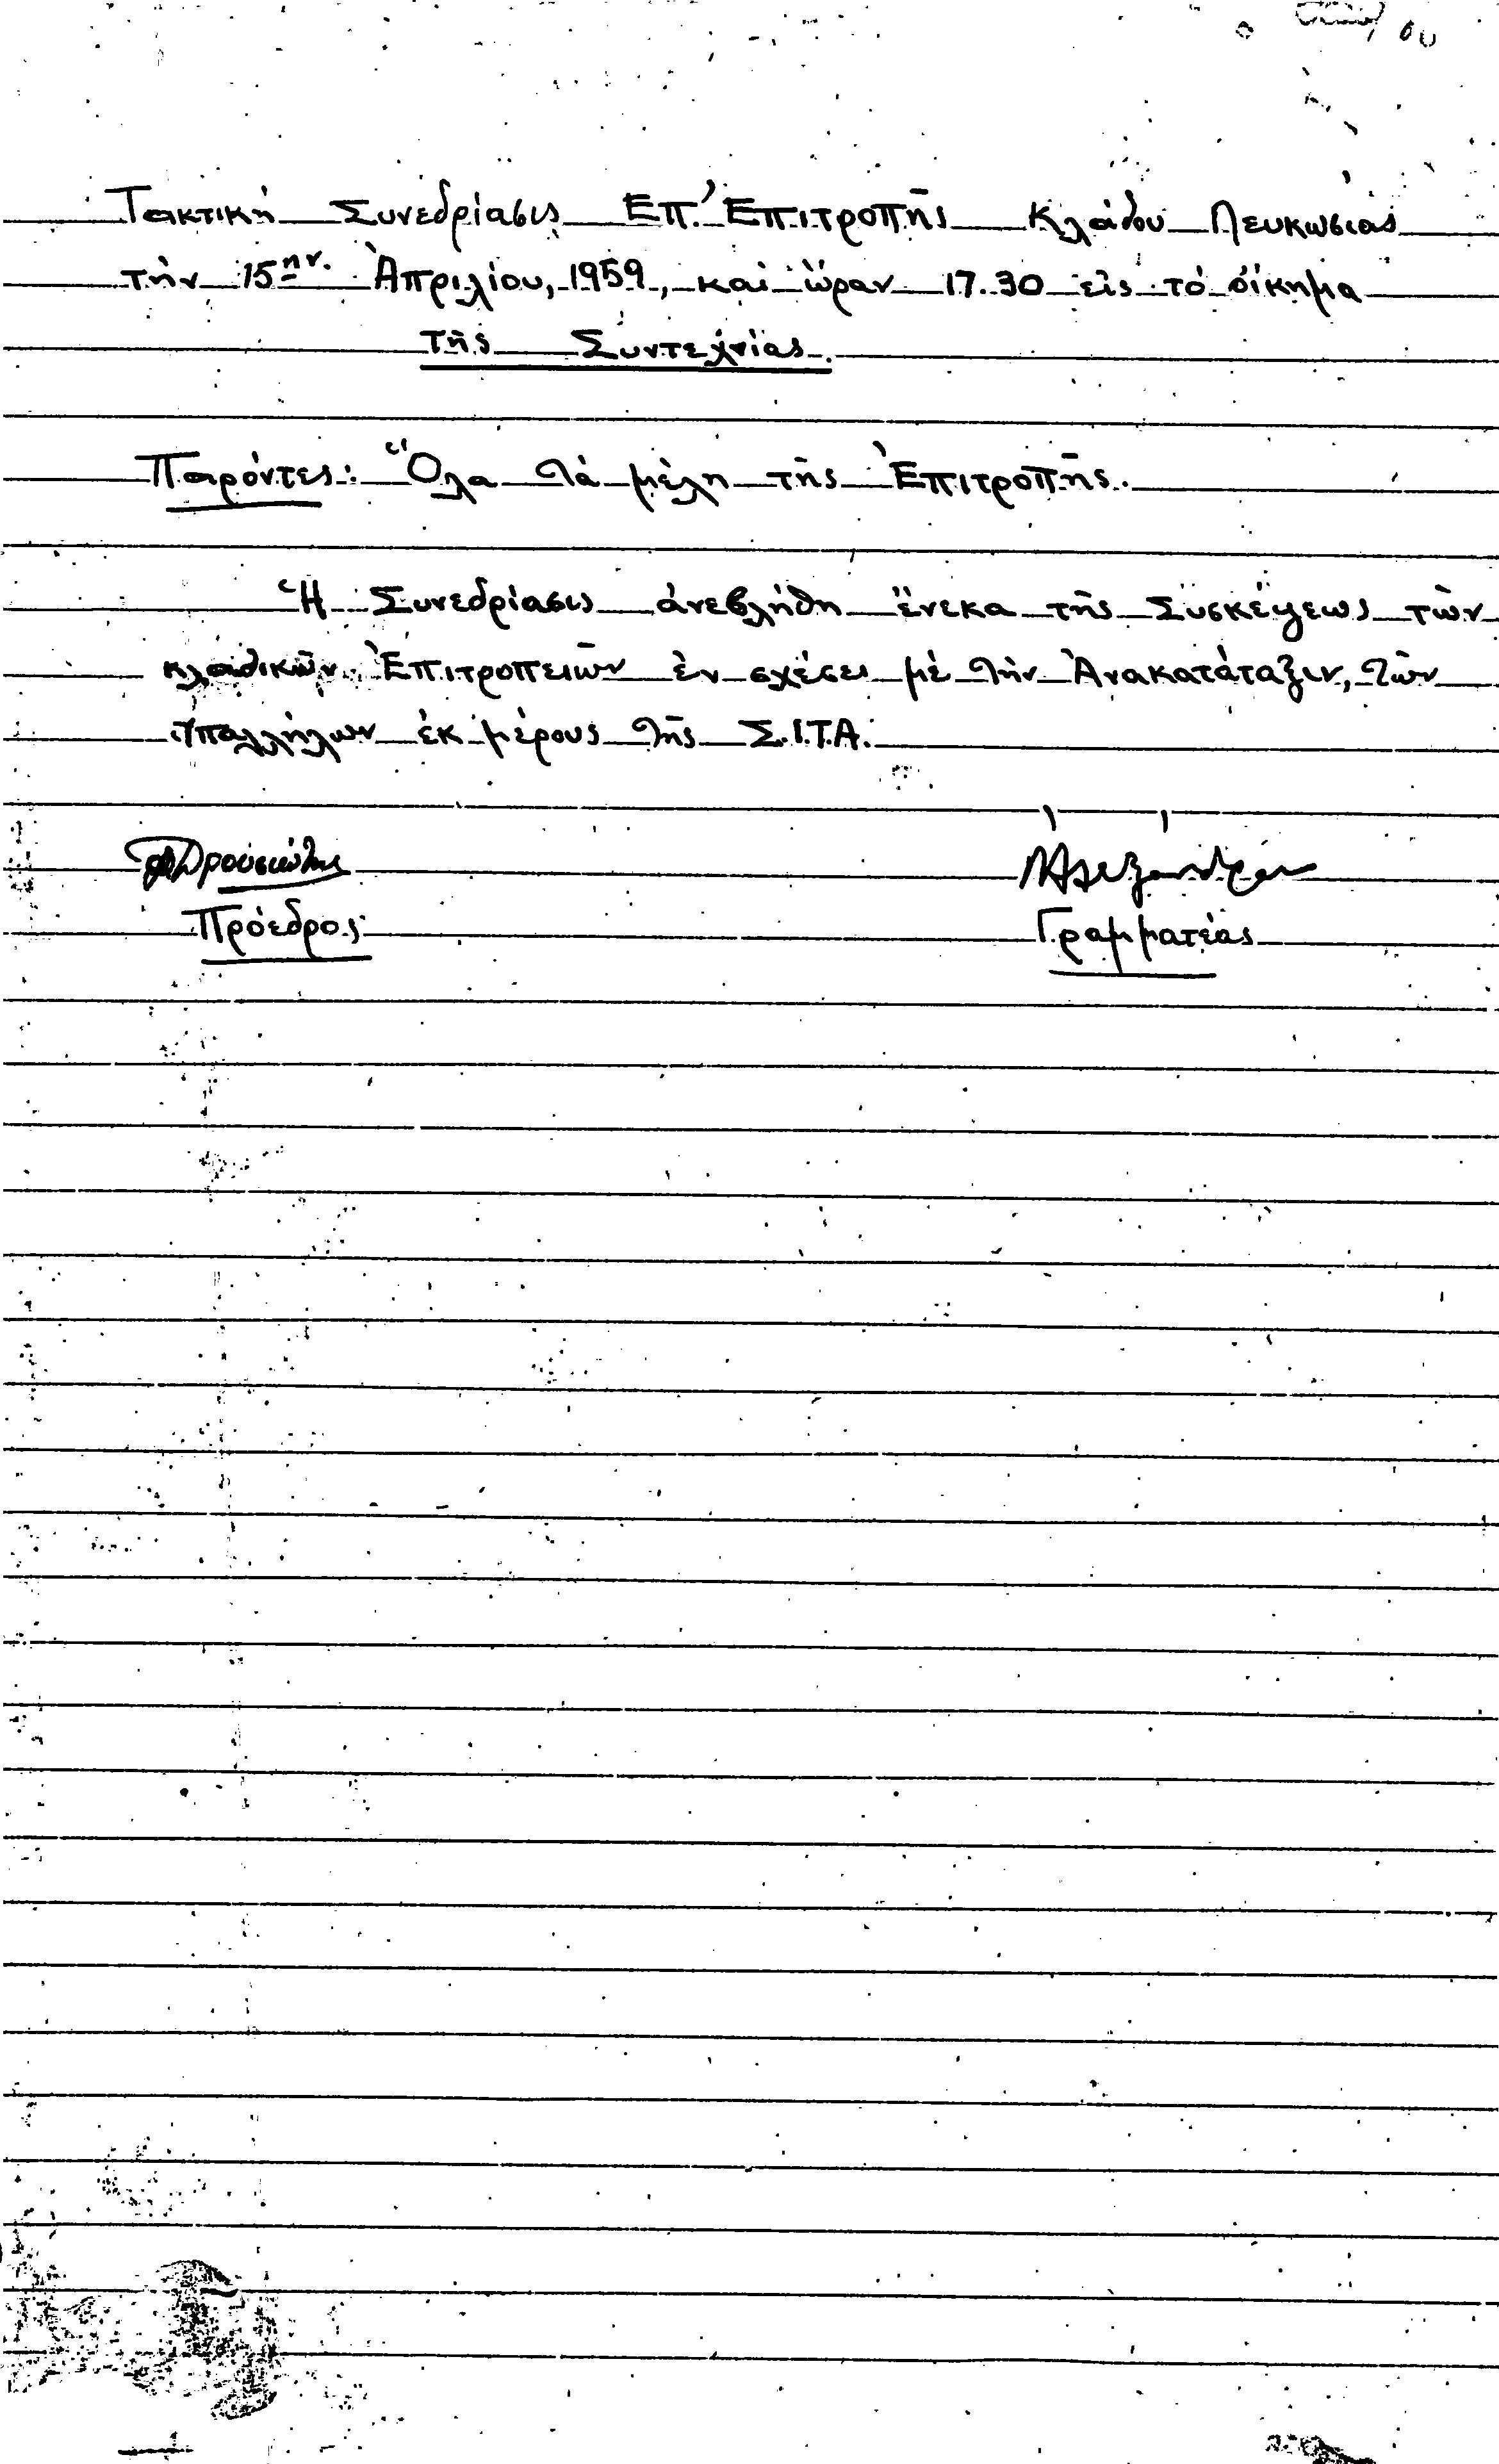 Τακτική Συνεδρίασις Επ. Ἐπιτροπῆς Κλάδου Λευκωσίας
τὴν 15ην. Ἀπριλίου, 1959, καὶ ὥραν 17.30 εἰς τὸ οἴκημα
τῆς Συντεχνίας.
Παρόντες: Ὅλα τὰ μέλη τῆς Ἐπιτροπῆς.
Ἡ Συνεδρίασις ἀνεβλήθη ἕνεκα τῆς Συσκέψεως τῶν
κλαδικῶν Ἐπιτροπειῶν ἐν σχέσει μὲ τὴν Ἀνακατάταξιν, τῶν
ὑπαλλήλων ἐκ μέρους τῆς Σ.Ι.Τ.Α.
Δρουσιώτης
Πρόεδρος
Γραμματέας